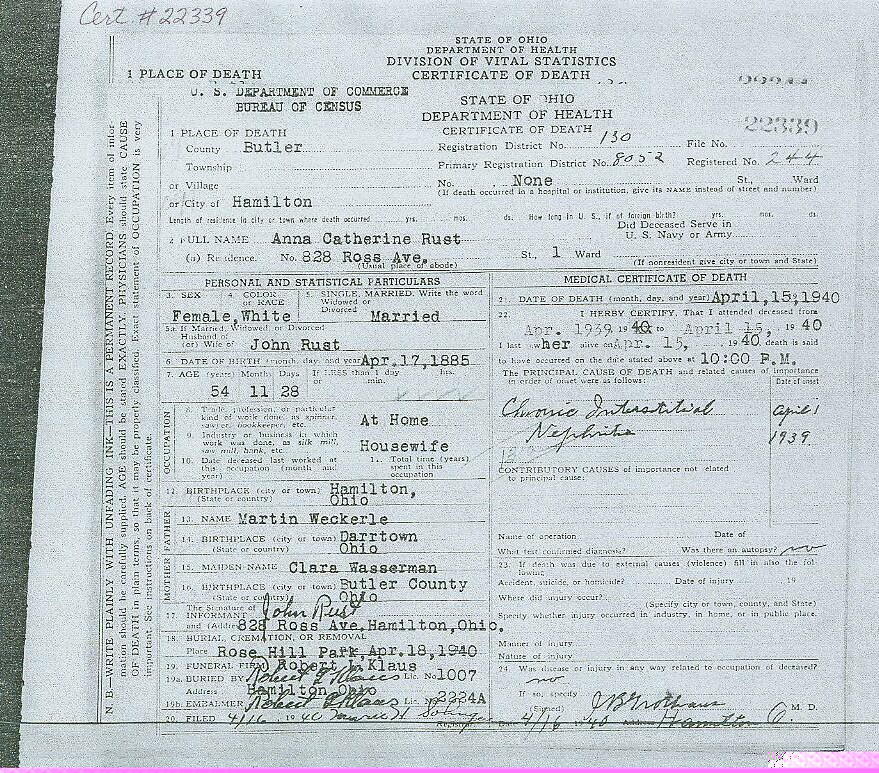 Cert. #22339
STATE OF OHIO
DEPARTMENT OF HEALTH
DIVISION OF VITAL STATISTICS
1 PLACE OF DEATH CERTIFICATE OF DEATH
U. S. DEPARTMENT OF COMMERCE
BUREAU OF CENSUS
STATE OF OHIO
DEPARTMENT OF HEALTH
CERTIFICATE OF DEATH
22339
1 PLACE OF DEATH
County Butler
Registration District No. 130 File No.
Township
Primary Registration District No. 8052 Registered No. 244
or Village
No. None St., Ward
(If death occurred in a hospital or institution, give its NAME instead of street and number)
or City of Hamilton
Length of residence in city or town where death occurred yrs. mos. ds. How long in U. S., if of foreign birth? yrs. mos. ds.
Did Deceased Serve in
U. S. Navy or Army
2 FULL NAME Anna Catherine Rust
(a) Residence. No. 828 Ross Ave. St., 1 Ward
(Usual place of abode) (If nonresident give city or town and State)
PERSONAL AND STATISTICAL PARTICULARS
3. SEX 4. COLOR or RACE 5. SINGLE, MARRIED. Write the word Widowed or Divorced
Female, White Married
5a. If Married, Widowed, or Divorced
Husband of
(or) Wife of John Rust
6. DATE OF BIRTH (month, day, and year) Apr.17,1885
7. AGE (years) Months Days If LESS than 1 day hrs. or min.
54 11 28
OCCUPATION
8. Trade, profession, or particular kind of work done, as spinner, sawyer, bookkeeper, etc. At Home
9. Industry or business in which work was done, as silk mill, saw mill, bank, etc. Housewife
10. Date deceased last worked at this occupation (month and year)
1. Total time (years) spent in this occupation
12. BIRTHPLACE (city or town) Hamilton,
(State or country) Ohio
FATHER
13. NAME Martin Weckerle
14. BIRTHPLACE (city or town) Darrtown
(State or country) Ohio
MOTHER
15. MAIDEN NAME Clara Wasserman
16. BIRTHPLACE (city or town) Butler County
(State or country) Ohio
The Signature of John Rust
17. INFORMANT
and (Address) 828 Ross Ave, Hamilton, Ohio.
18. BURIAL, CREMATION, OR REMOVAL
Place Rose Hill Park Apr.18,1940
19. FUNERAL FIRM Robert L Klaus
19a. BURIED BY Robert L Klaus Lic. No. 1007
Address Hamilton Ohio
19b. EMBALMER Robert L Klaus Lic. No. 2234A
20. FILED 4/16 1940 Registrar
MEDICAL CERTIFICATE OF DEATH
21. DATE OF DEATH (month, day, and year) April,15,1940
22. I HEREBY CERTIFY, That I attended deceased from
Apr. 1939 1940 to April 15, 1940
I last saw her alive on Apr. 15, 1940, death is said
to have occurred on the date stated above at 10:00 P.M.
The PRINCIPAL CAUSE OF DEATH and related causes of importance
in order of onset were as follows: Date of onset
Chronic Interstitial April 1
Nephritis 1939
CONTRIBUTORY CAUSES of importance not related
to principal cause:
Name of operation Date of
What test confirmed diagnosis? Was there an autopsy? no
23. If death was due to external causes (violence) fill in also the following
Accident, suicide, or homicide? Date of injury 19
Where did injury occur?
(Specify city or town, county, and State)
Specify whether injury occurred in industry, in home, or in public place.
Manner of injury
Nature of injury
24. Was disease or injury in any way related to occupation of deceased?
no
If so, specify
(Signed) M. D.
Date 4/16 1940 Address Hamilton O.
N. B.—WRITE PLAINLY WITH UNFADING INK—THIS IS A PERMANENT RECORD. Every item of information should be carefully supplied. AGE should be stated EXACTLY. PHYSICIANS should state CAUSE OF DEATH in plain terms, so that it may be properly classified. Exact statement of OCCUPATION is very important. See instructions on back of certificate.